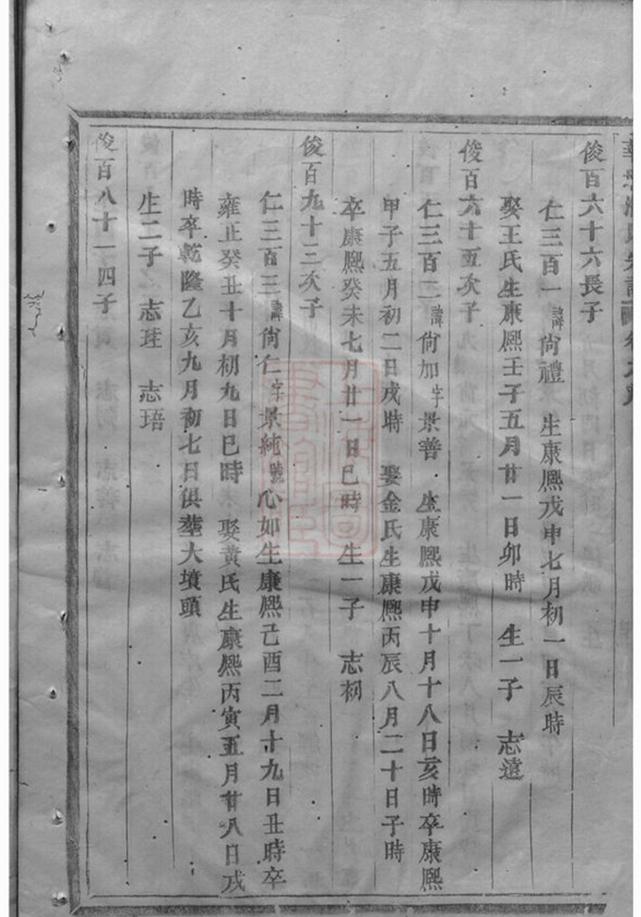 俊百六十六長子
仁三百一諱尙禮 生康熙戊申七月初一日辰時
娶王氏生康熙壬子五月廿一日卯時 生一子 志遠
俊百六十五次子
仁三百二諱尙加字景善 生康熙戊申十月十八日亥時卒康熙
甲子五月初二日戌時 娶金氏生康熙丙辰八月二十日子時
卒康熙癸未七月廿一日巳時 生一子 志初
俊百九十二次子
仁三百三諱尙仁字景純號心如生康熙己酉二月十九日丑時卒
雍正癸丑十月初九日巳時 娶黄氏生康熙丙寅五月廿八日戌
時卒乾隆乙亥九月初七日俱塟大墳頭
生二子 志珪 志珸
俊百八十一四子